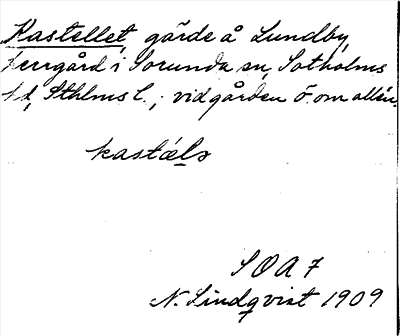 Kastellet, gärde å Lundby,
herrgård i Sorunda sn, Sotholms
hd, Sthlms l.; vid gården ö. om allén.
kastæls
SOA 7
N. Lindqvist 1909